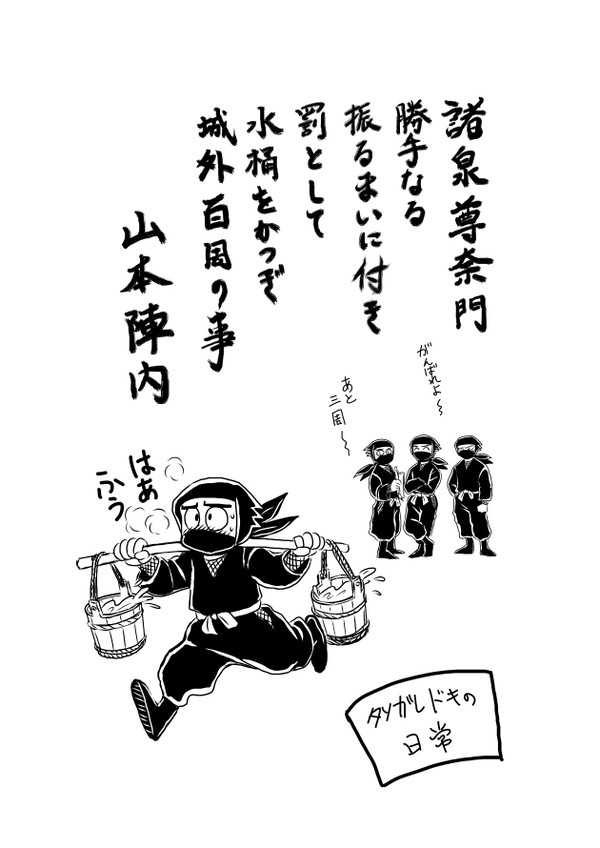 諸泉尊奈門
勝手なる
振るまいに付き
罰として
水桶をかつぎ
城外百周の事
山本陣内
がんばれよ〜
あと
三周〜
はあ
ふう
タソガレドキの
日常